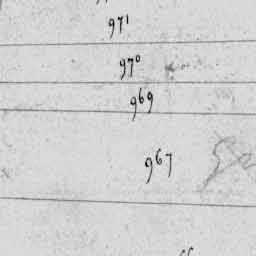 971
970
969
967